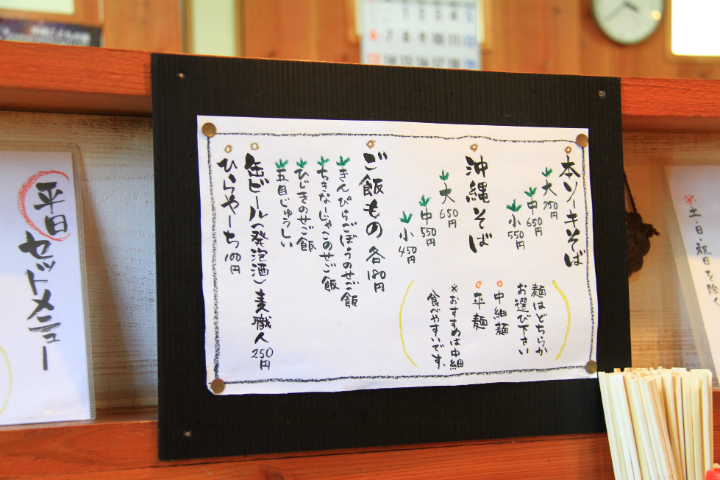 本ソーキそば
大 750円
中 650円
小 550円
麺はどちらか
お選び下さい
中細麺
平麺
※おすすめは中細
食べやすいです。
沖縄そば
大 650円
中 550円
小 450円
ご飯もの 各180円
きんぴらごぼうのせご飯
ちきなーじゃこのせご飯
ひじきのせご飯
五目じゅうしい
缶ビール(発泡酒)麦職人 250円
ひらやーち 100円
平日
セットメニュー
※土・日・祝日を除